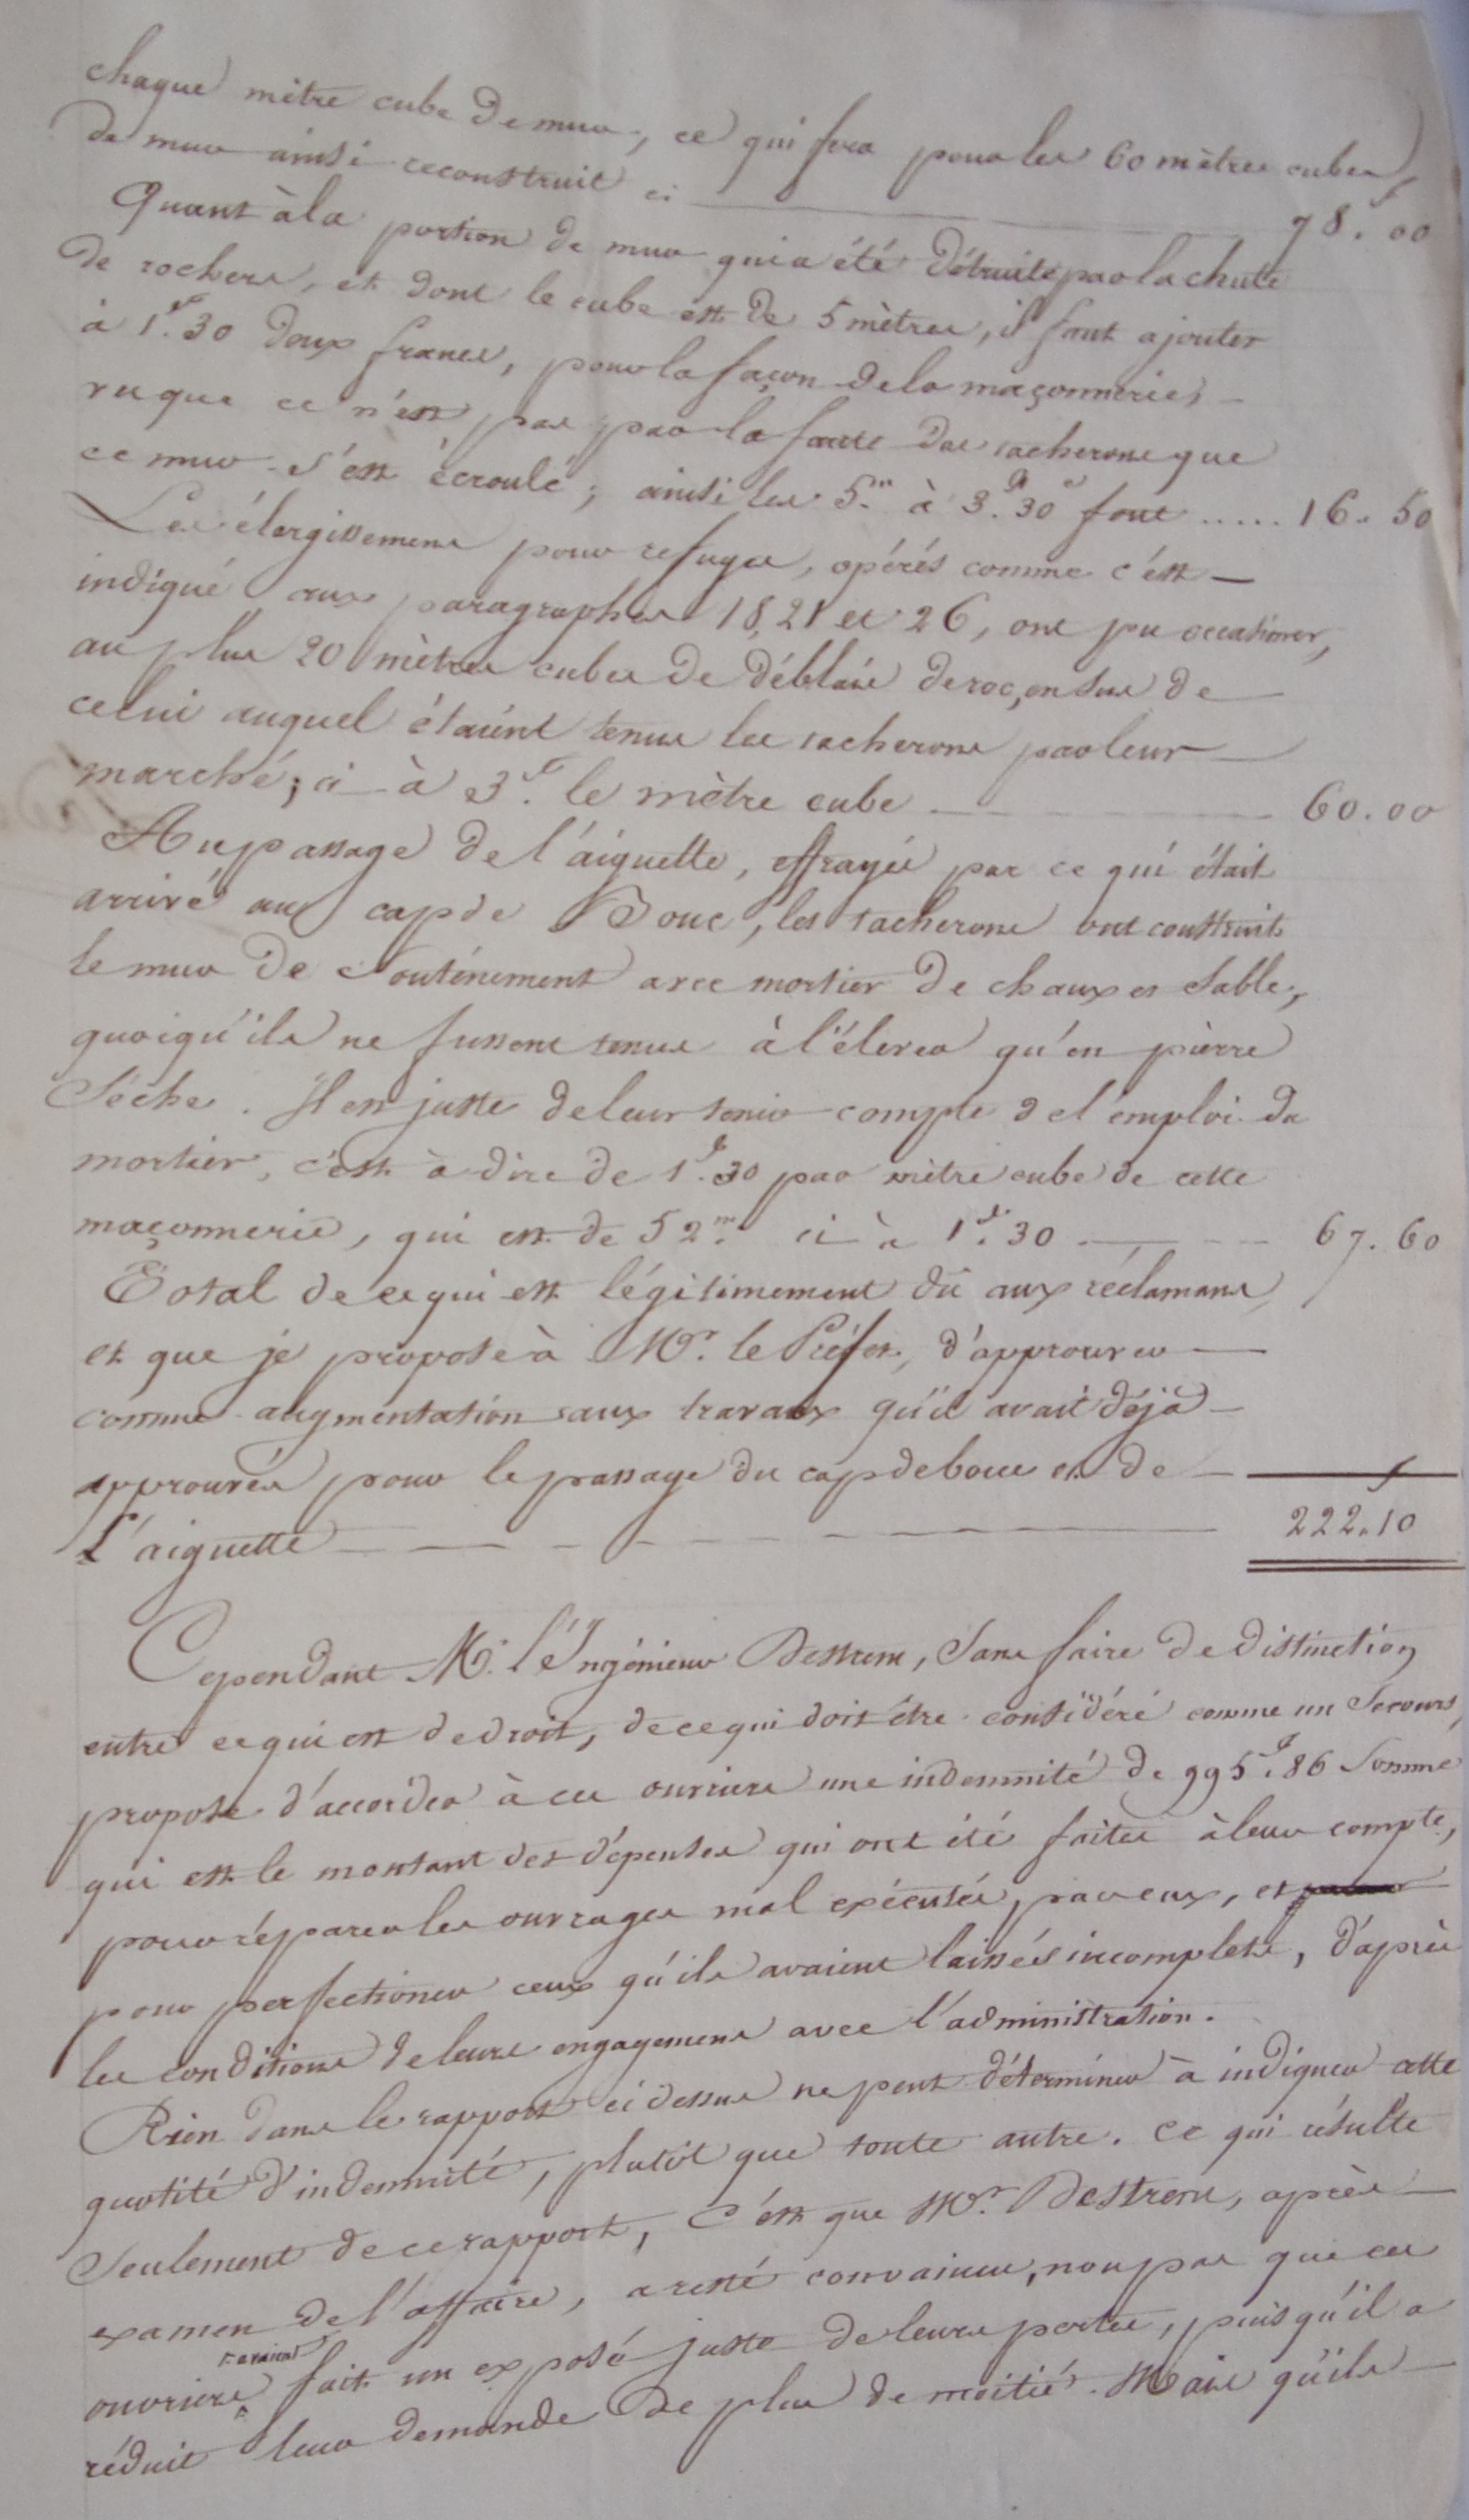 chaque mètre cube de mur, ce qui fera pour les 60 mètres cubes
de mur ainsi reconstruit ci 78.f 00
Quant à la portion de mur qui a été détruite par la chute
de rochers, et dont le cube est de 5 mètres, il faut ajouter
à 1.f 30 deux francs, pour la façon de la maçonnerie,
vu que ce n'est pas par la faute des tacherons que
ce mur s'est écroulé; ainsi les 5.m à 3.f 30c font ..... 16. 50
Les élargissemens pour refuges, opérés comme c'est
indiqué aux paragraphes 18, 21 et 26, ont pu occationer,
au plus 20 mètres cubes de déblais de roc, en sus de
celui auquel étaient tenus les tacherons par leur
marché; ci à 3.f le mètre cube 60.00
Au passage de l'aiguette, effrayés par ce qui était
arrivé au cap de Bouc, les tacherons ont construit
le mur de soutènement avec mortier de chaux et sable,
quoiqu'ils ne fussent tenus à l'élever qu'en pierre
sèche. Il est juste de leur tenir compte de l'emploi du
mortier, c'est à dire de 1.f 30 par mètre cube de cette
maçonnerie, qui est de 52.m ci à 1.f 30 67.60
Total de ce qui est légitimement dû aux réclamans
et que je propose à Mr. le Préfet, d'approuver
comme augmentation aux travaux qu'il avait déjà
approuvés pour le passage du cap de bouc et de
L'aiguette 222.f 10
Cependant M. l'Ingénieur Destrem, sans faire de distinction
entre ce qui est de droit, de ce qui doit être considéré comme un secours,
propose d'accorder à ces ouvriers une indemnité de 995.f 86 somme
qui est le montant des dépenses qui ont été faites à leur compte,
pour réparer les ouvrages mal exécutés, par eux, et
pour perfectioner ceux qu'ils avaient laissés incomplets, d'après
les conditions de leurs engagemens avec l'administration.
Rien dans le rapport ci dessus ne peut déterminer à indiquer cette
quotité d'indemnité, plutôt que toute autre. Ce qui résulte
seulement de ce rapport, c'est que Mr. Destrem, après
examen de l'affaire, a resté convaincu, non pas que ces
ouvriers avaient fait un exposé juste de leurs pertes, puisqu'il a
réduit leur demande de plus de moitié. Mais qu'ils